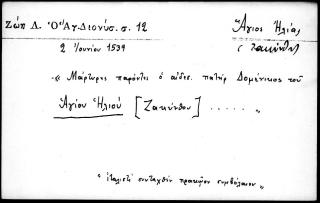 Ζώη Λ. Ὁ Ἅγ. Διονύσ. σ. 12
Ἅγιος Ἠλίας
(Ζακύνθου)
2 Ἰουνίου 1539
" Μάρτυρες παρόντες ὁ αἰδεσ. πατὴρ Δομένικος τοῦ
Ἁγίου Ἠλιοῦ [Ζακύνθου] ..... "
" ἰταλιστὶ συνταχθὲν πρακτικὸν συμβόλαιον "